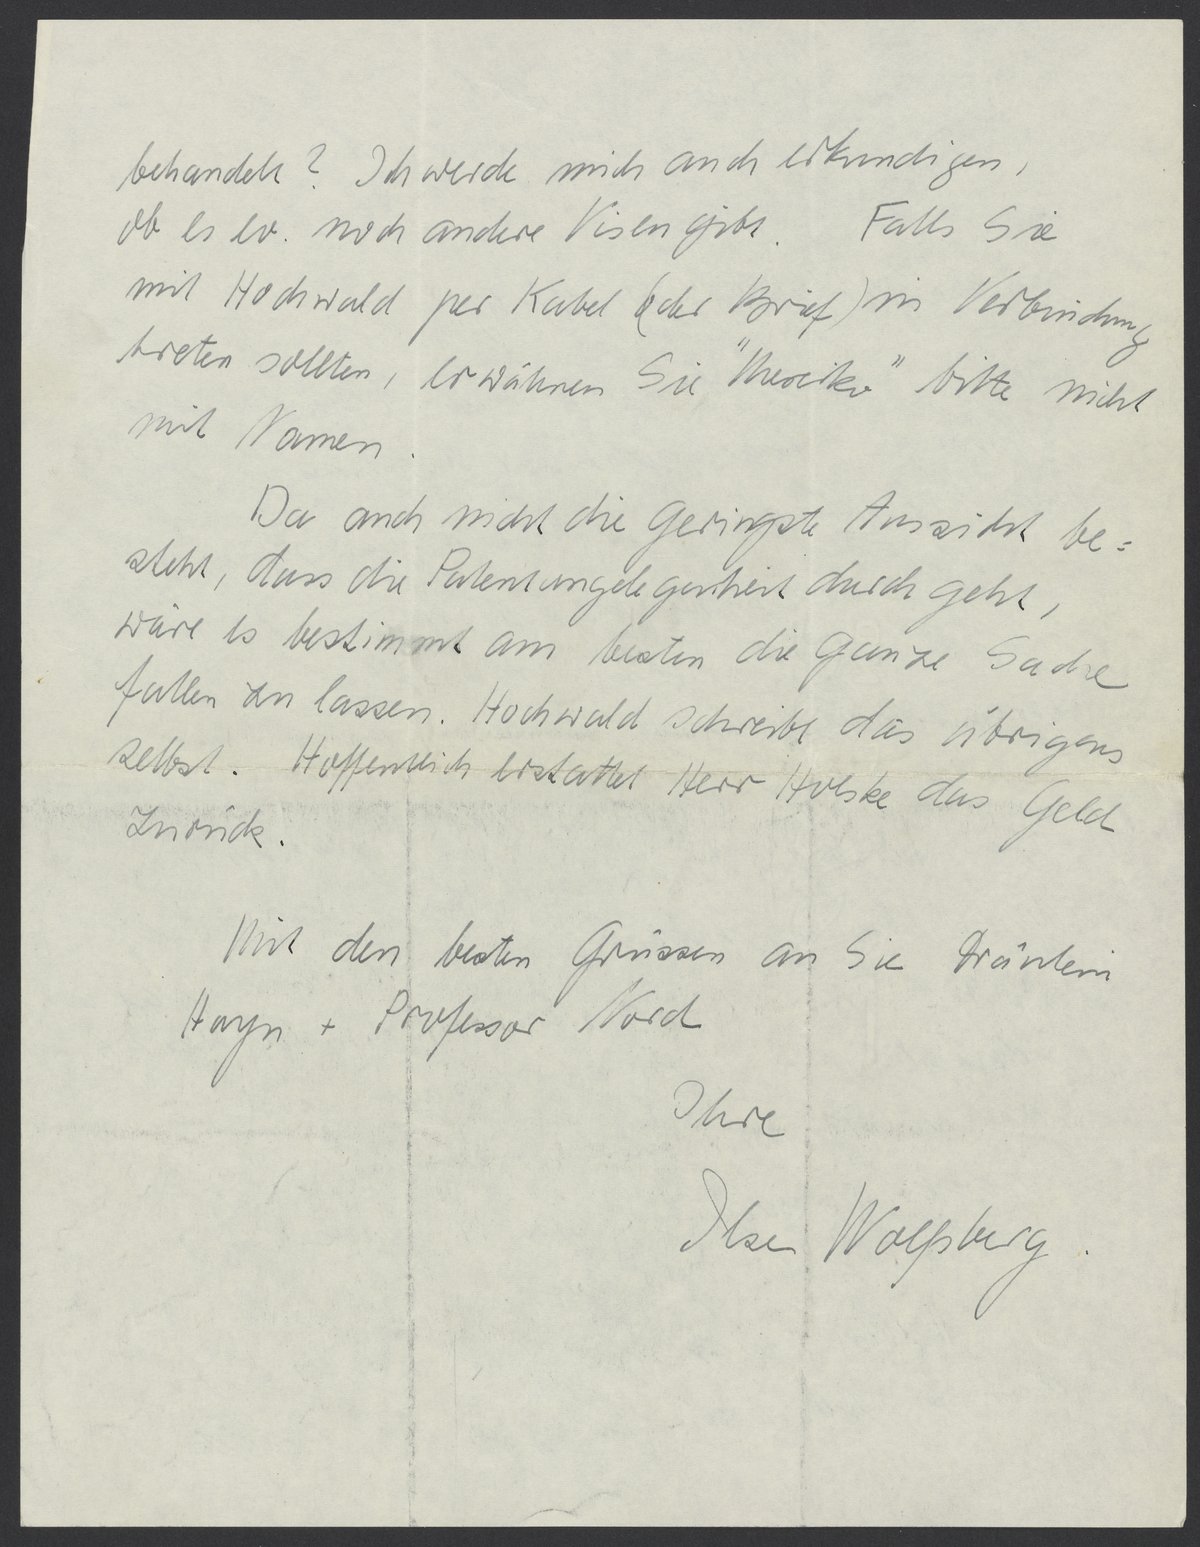 behandelt? Ich werde mich auch erkundigen,
ob es ev. noch andere Visen gibt. Falls Sie
mit Hochwald per Kabel (oder Brief) in Verbindung
treten sollten, erwähnen Sie "Mexiko" bitte nicht
mit Namen.
Da auch nicht die geringste Aussicht be=
steht, dass die Patentangelegenheit durch geht,
wäre es bestimmt am besten die ganze Sache
fallen zu lassen. Hochwald schreibt das übrigens
selbst. Hoffentlich erstattet Herr Holske das Geld
zurück.
Mit den besten Grüssen an Sie Fräulein
Hayn + Professor Nord
Ihre
Ilse Wolfsberg.